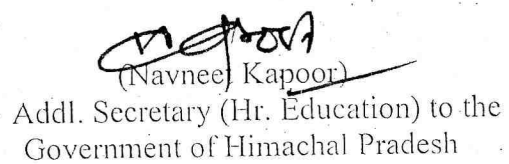 (Navneet Kapoor)
Addl. Secretary (Hr. Education) to the
Government of Himachal Pradesh